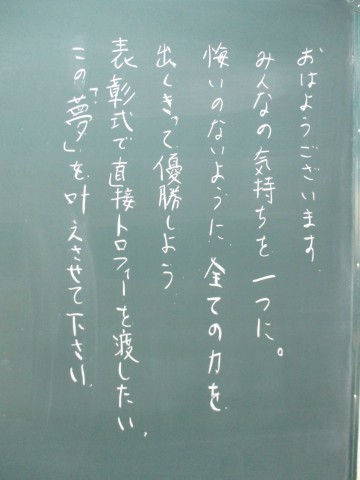 おはようございます.
みんなの気持ちを一つに。
悔いのないように全ての力を
出しきって優勝しよう
表彰式で直接トロフィーを渡したい.
この「夢」を叶えさせて下さい.